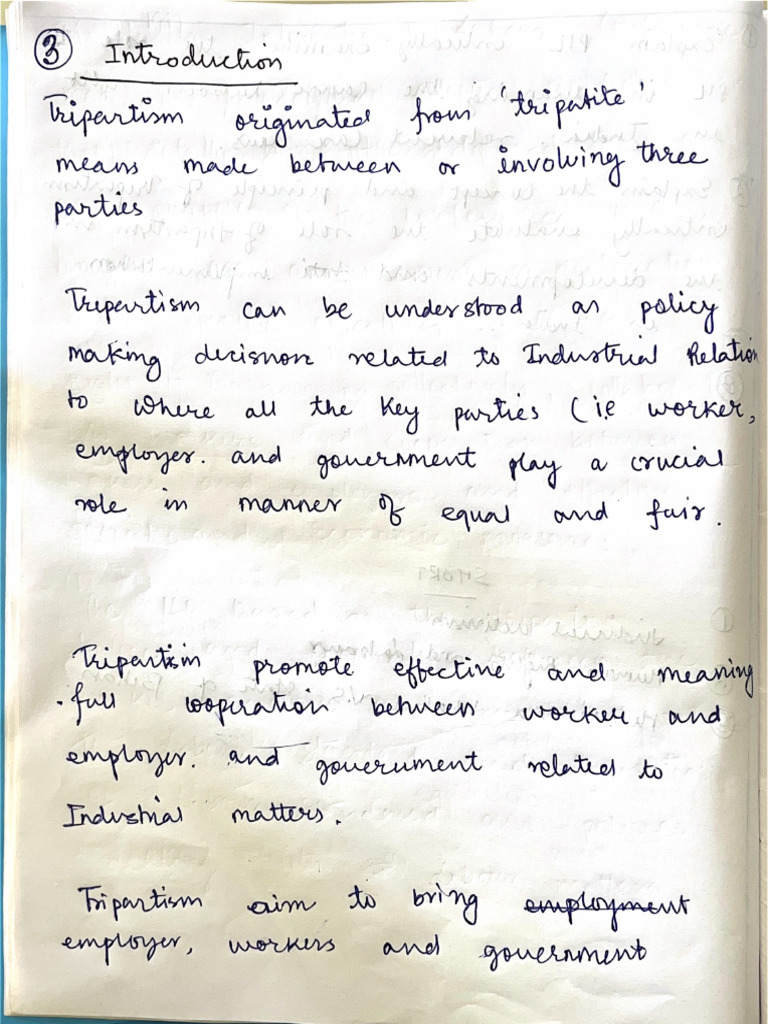 3 Introduction
Tripartism originated from 'tripatite'
means made between or involving three
parties
Tripartism can be understood as policy
making decision related to Industrial Relation
to where all the key parties (ie worker,
employer. and government play a crucial
role in manner of equal and fair.
Tripartism promote effective and meaning
-full cooperation between worker and
employer. and government related to
Industrial matters.
Tripartism aim to bring employment
employer, workers and government